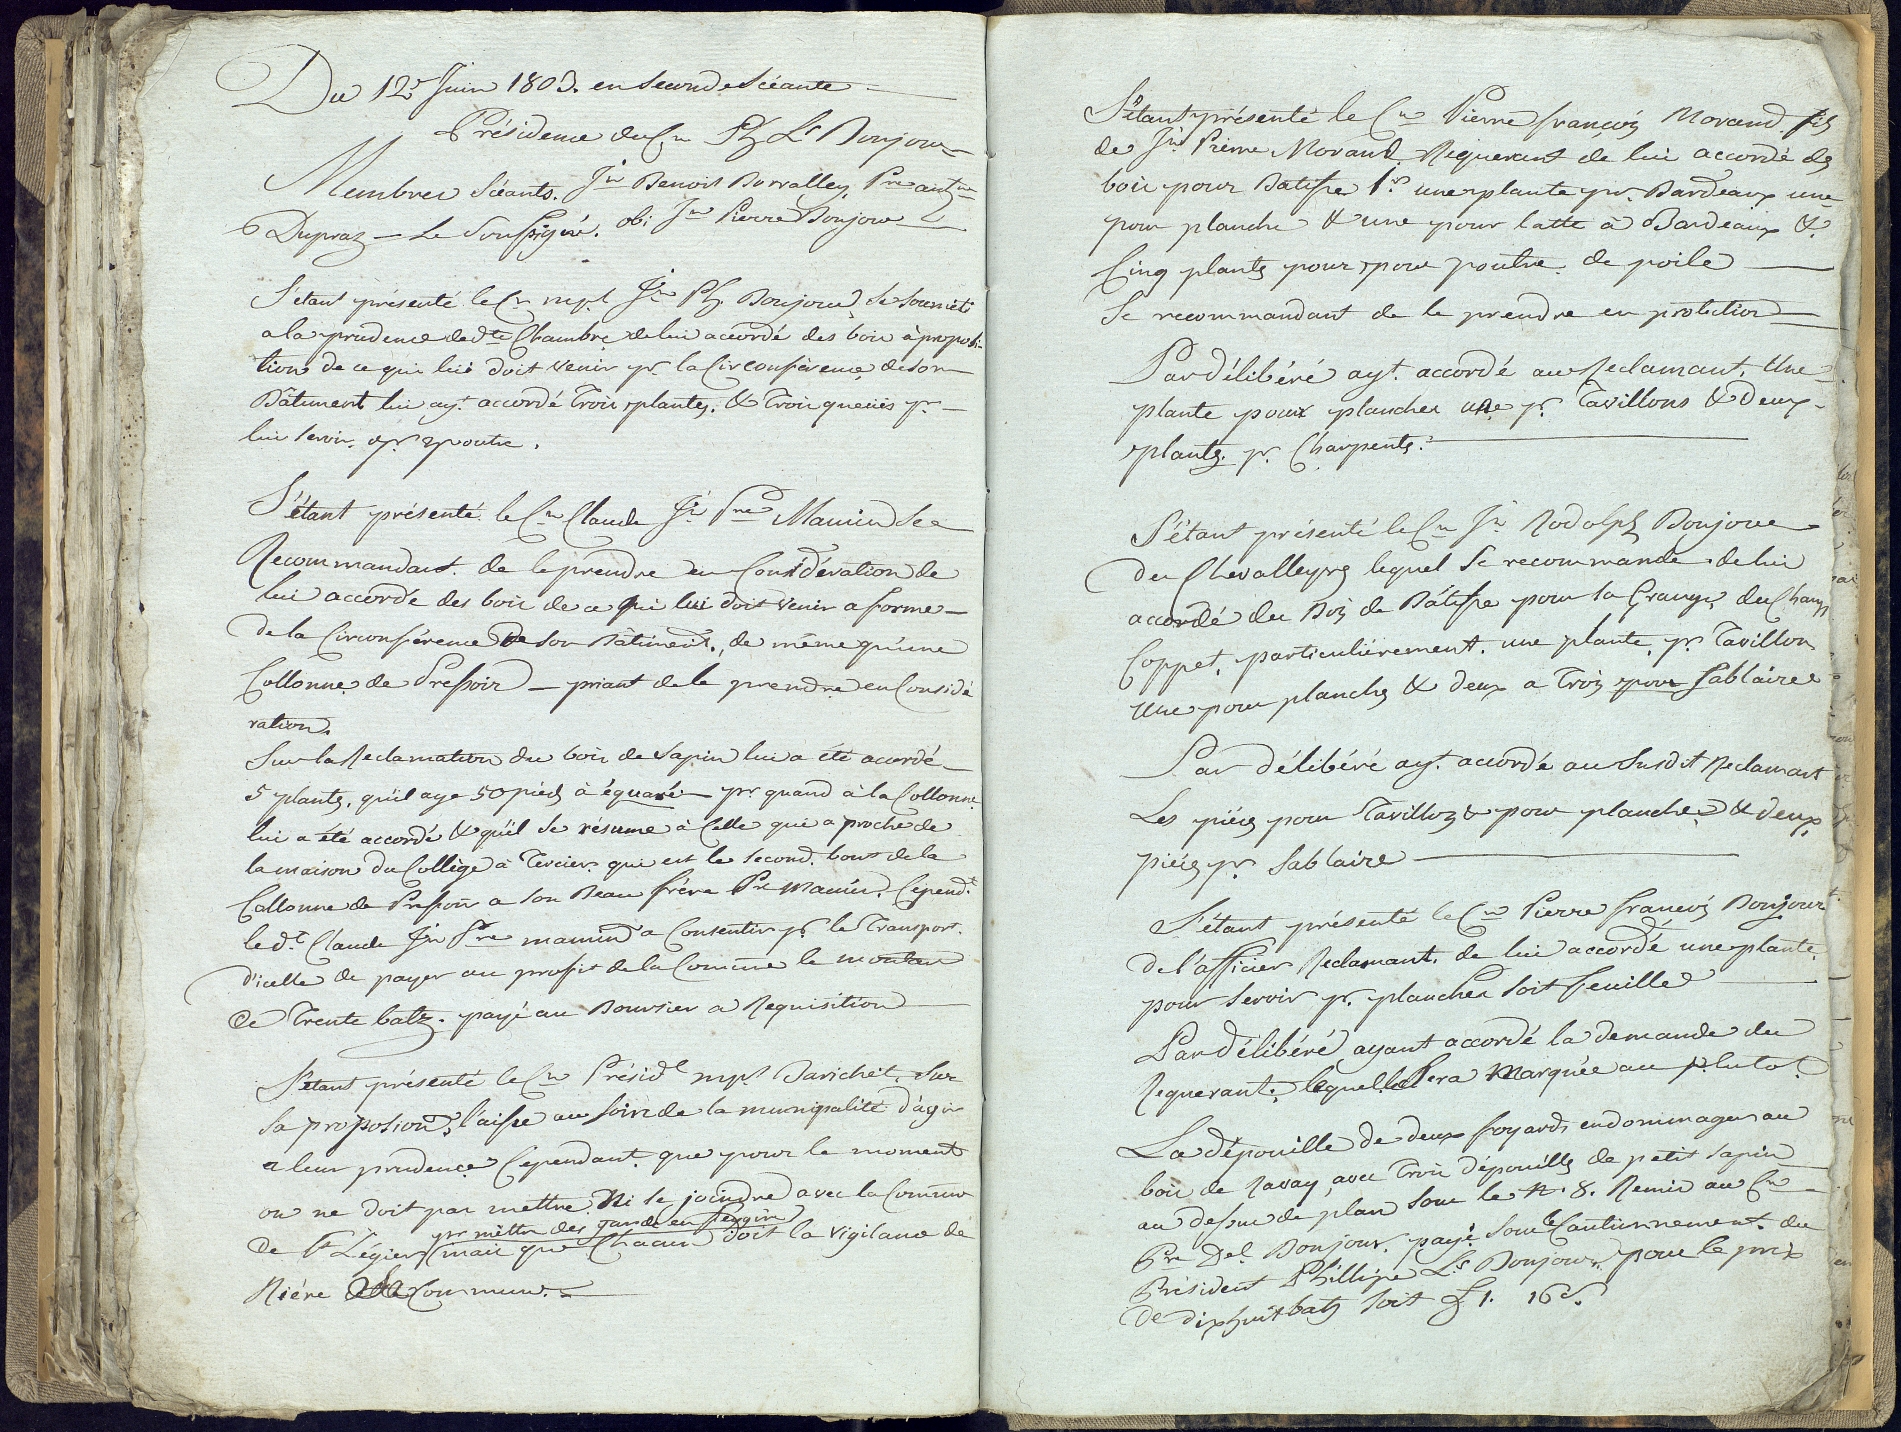 Du 12e Juin 1803. en seconde Scéante
Présidence du Cn Ph Ls Bonjour
Membres Scéants. Jn Benoit Dorvalley, Pre antne
Dupraz – Le Soussigné. ob: Jn Pierre Bonjour
S'etant présenté le Cn mpl Jn Ph. Bonjour, se soumêts
a la prudence de dte Chambre de lui accordé des bois à proposi-
tion de ce qui lui doit venir pr. la Circonférence de son
Bâtiment lui ayt. accordé Trois plantes. & Trois queües pr
lui servir. pr poutre.
S'étant présenté le Cn Claude Jn Pre Mamin se
Recommandant. de le prendre en Considération de
lui accordé des bois de ce qui lui doit venir a forme
de la Circonférence De son Bâtiment., de même qu'une
Collonne de Pressoir – priant de le prendre en Considé
ration.
Sur la Reclamation du bois de sapin lui a été accordé
5 plants, qu'il aye 50 pieds à équaré – pr quand à la Collonne
lui a été accordé & qu'il se résume à Celle qui a proche de
la maison du Collège à Tercier. qui est le second. bout de la
Collonne de Pressoir a son Beau frére Pre Mamin. Cependt
le dt. Claude Jn Pre mamin a Consentir pr le Transport.
d'icelle de payer au profit de la Comune le montan
De Trente batz. payé au Boursier a Requisition
S'etant présenté le Cn Présidt mpl Barichet, Sur
sa proposion, l'aisse au soin de la municipalité d'agir
a leur prudence Cependant. que pour le moment
on ne doit pas mettre Ni se joindre avec la Commune
pr mettre des garde en Fregire
de St Légier (mais que Chacun doit la vigilance de
Riére Commun.
S'étant présenté le Cn Pierre françois Morand fils
de Jn Pierre Morand. Requerant de lui accordé des
bois pour Batisse 1o une plante pr. Bardeaux une
pour planche & une pour latte à Bardeaux &
Cinq plants pour pour poutre. de poile
Se recommandant de le prendre en protection
Par délibéré ayt. accordé au Reclamant. Une
plante pour planches une pr. Tavillons & deux
plants. pr. Charpents.
S'étant présenté le Cn Jn Rodolph Bonjour
du Chevalleyre lequel se recommande de lui
accordé du Bois de Bâtisse pour la Grange du Champ
Coppet, particuliérement. une plante, pr. Tavillon
une pour planche & deux a Trois pour Sablaire
Par délibéré ayt. accordé au Susdit Reclamant
Les piéis pour Tavillon & pour planches & deux
piéis pr. Sablaire
S'étant présenté le Cn Pierre francois Bonjour
de l'afficier Reclamant. de lui accordé une plante
pour servir pr. planches soit feuille
Par délibéré ayant accordé la demande du
Requerant; lequelle sera Marquée au plutot.
La dépouille de deux foyards endommager au
bois de Ravay, avec Trois dépouille de petit sapin
au dessus de plan sous le N. 8. Remis au Cn
Pre Del Bonjour. payé sous le Cautionnement. du
Président Phillipe Ls Bonjour. pour le prix
de dixhuit batz soit £ 1. 16 s.